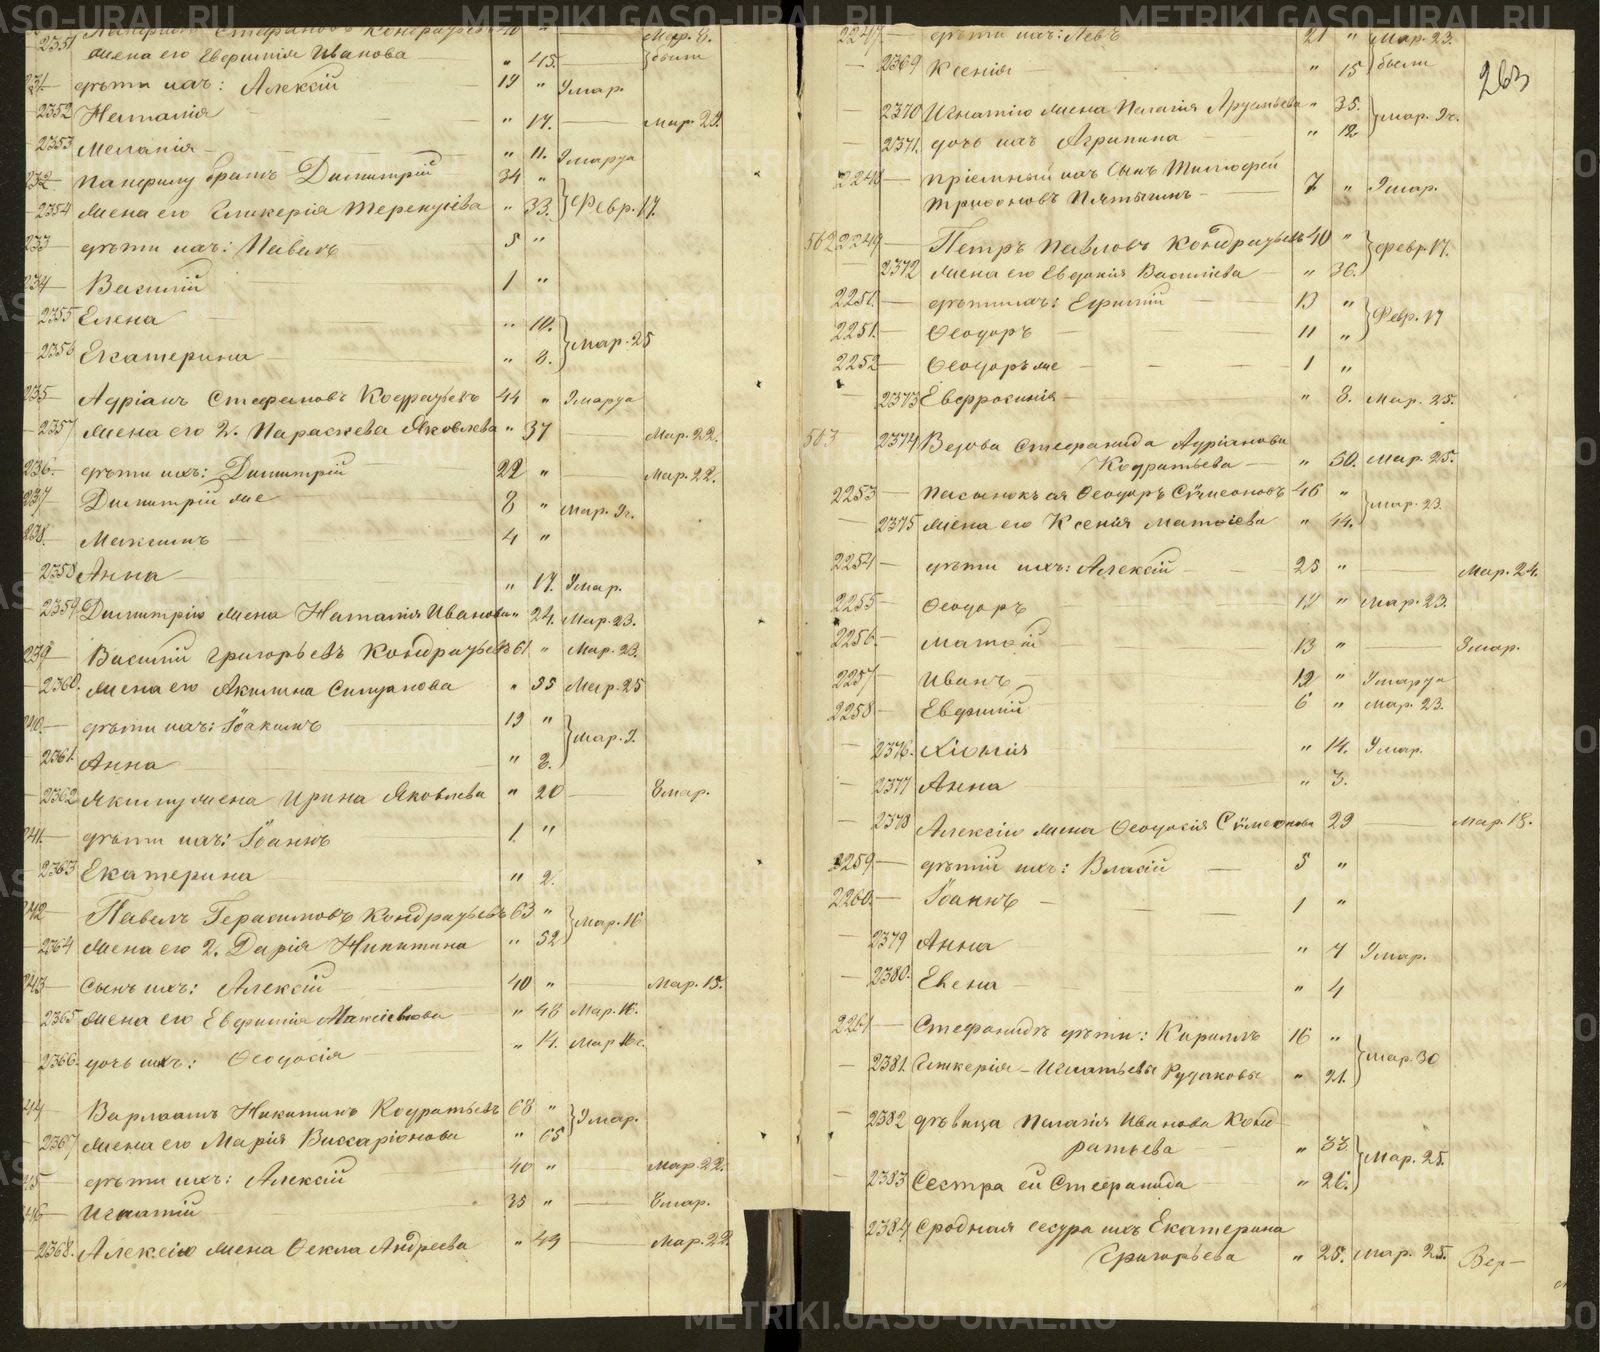 METRIKI.GASO-URAL.RU
2351 жена его Евфимія Иванова " 45. были
231 дѣти ихъ: Алексій 19 " 9 мар.
2352 Наталія " 17. — Мар. 22.
2353 Меланія " 11. 9 марта
232 Панфилу братъ Димитрій 34 "
2354 жена его Гликерія Терентіева " 33. Февр. 17.
233 дѣти ихъ: Павелъ 5 "
234 Василій 1 "
2355 Елена " 10.
2356 Екатерина " 8. Мар. 25
235 Адріанъ Стефановъ Кодратьевъ 44 " 9 марта
2357 жена его 2. Параскева Яковлева " 37 — Мар. 22.
236 дѣти ихъ: Димитрій 22 " — Мар. 22.
237 Димитрій же 8 " Мар. 9.
238 Максимъ 4 "
2358 Анна " 17. 9 мар.
2359 Димитрію жена Наталія Иванова " 24. Мар. 23.
239 Василій Григорьевъ Кондратьевъ 61 " Мар. 23.
2360. жена его Акилина Симонова " 55 Мар. 25
240 дѣти ихъ: Іоакимъ 19 "
2361. Анна " 2. Мар. 9.
2362 Якиму жена Ирина Яковлева " 20 — 8 мар.
241 дѣти ихъ: Іоаннъ 1 "
2363 Екатерина " 2.
242 Павелъ Герасимовъ Кондратьевъ 63 "
2364 жена его 2. Дарія Никитина " 52 Мар. 16
243 сынъ ихъ: Алексій 40 " — Мар. 15.
2365 жена его Евфимія " 48 Мар. 16.
2366. дочь ихъ: Ѳеодосія " 14. Мар. 16.
244 Варлаамъ Никитинъ Кодратьевъ 68 "
2367 жена его Марія Виссаріонова " 65 9 мар.
245 дѣти ихъ: Алексій 40 " — Мар. 22.
246 Игнатій 35 " — 8 мар.
2368. Алексію жена Ѳекла Андреева " 49 — Мар. 22.
263
2247 дѣти ихъ: Левъ 21 " Мар. 23.
2369 Ксенія " 15 были
2370 Игнатію жена Пелагія " 35.
2371. дочь ихъ Агрипина " 12. Мар. 9.
2248 пріемный ихъ сынъ Тимофей
Трифоновъ 7 " 9 мар.
562 2249 Петръ Павловъ Кондратьевъ 40 "
2372 жена его Евдокія Василіева " 36. Февр. 17.
2250 дѣти ихъ: Ефимій 13 "
2251. Ѳеодоръ 11 " Февр. 17
2252 Ѳеодоръ же 1 "
2373 Евфросинія " 8. Мар. 25.
563 2374 Вдова Стефанида Адріанова
Кодратьева " 50. Мар. 25.
2253 пасынокъ ея Ѳеодоръ Сѵмеоновъ 46 "
2375 жена его Ксенія Матѳіева " 44. Мар. 23.
2254 дѣти ихъ: Алексій 25 " — Мар. 24.
2255 Ѳеодоръ 19 " Мар. 23.
2256. Матѳій 13 " — 9 мар.
2257 Иванъ 12 " 9 марта
2258 Евфимій 6 " Мар. 23.
2376. Хіонія " 14. 9 мар.
2377 Анна " 3.
2378 Алексію жена Ѳеодосія Сѵмеонова 29 — Мар. 18.
2259 дѣти ихъ: Власій 5 "
2260. Іоаннъ 1 "
2379 Анна " 7 9 мар.
2380. Елена " 4
2261 Стефаниды дѣти: Кириллъ 16 "
2381. Гликерія — Игнатьевы Рудаковы " 21. Мар. 30
2382 дѣвица Пелагія Иванова Конд-
ратьева " 33
2383 Сестра ей Стефанида " 26. Мар. 25.
2384 Сродная сестра ихъ Екатерина
Григорьева " 25. Мар. 25. Вер—
METRIKI.GASO-URAL.RU